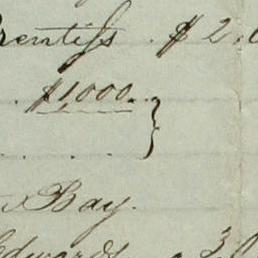 rentifs . $ 2.
. $1000. . }
. . . .
Bay.
Edwards 3